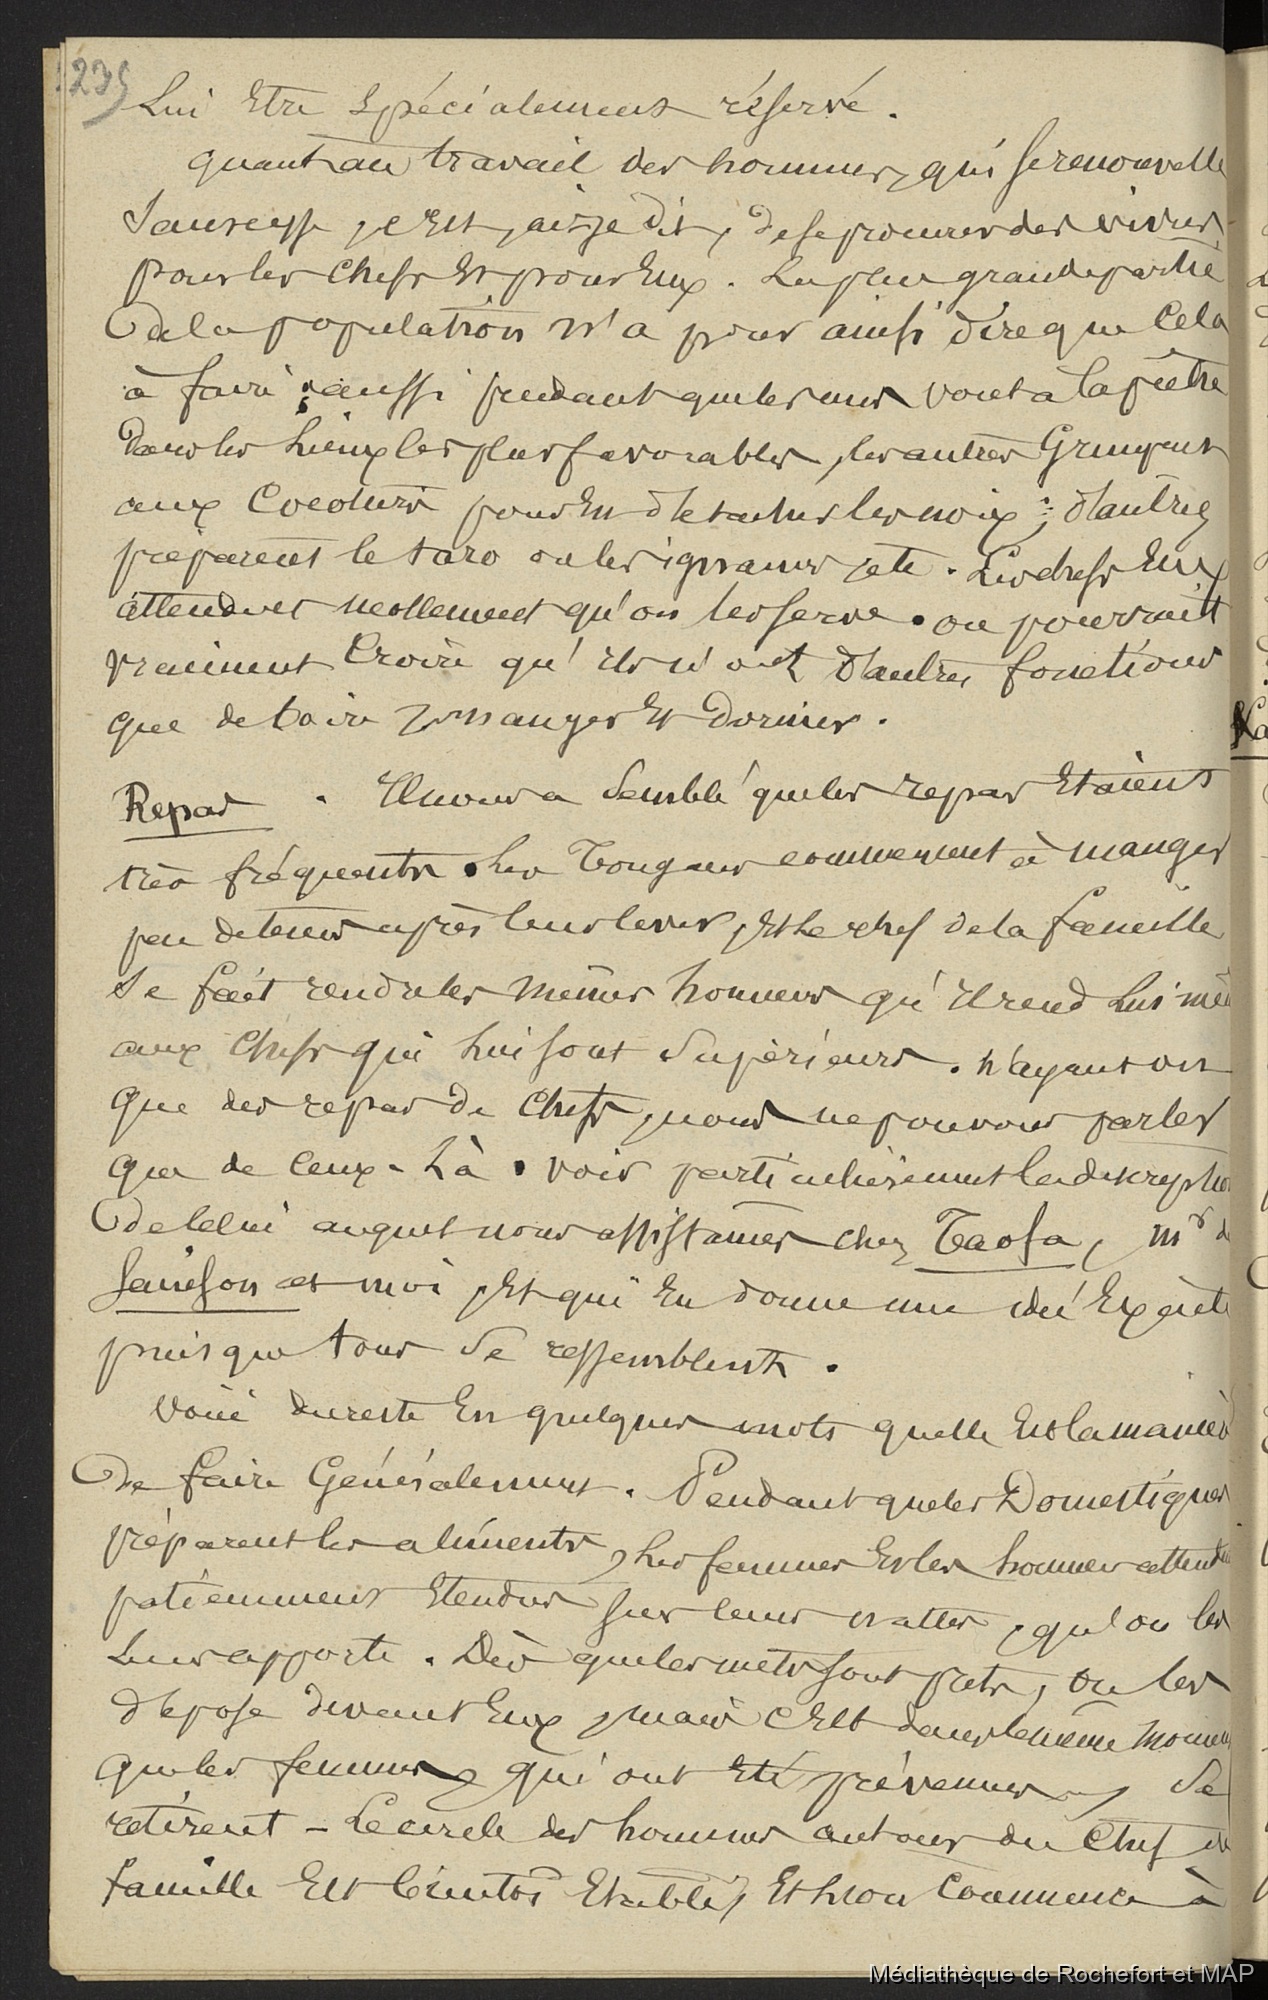 235
Lui Etre Spécialement réservé.
quant au travail des hommes, qui se renouvelle
Sans cesse, c'Est, ai-je dit, de se procurer des vivres
pour les chefs Et pour Eux. La plus grande partie
de la population n'a pour ainsi dire que Cela
à faire ; aussi pendant que les uns vont à la pêche
dans les Lieux les plus favorables, les autres Grimpent
aux Cocotiers pour En détacher les noix ; d'autres
préparent le taro ou les ignames, etc. Les chefs Eux
attendent mollement qu'on les serve. on pourrait
vraiment Croire qu'ils n'ont d'autres fonctions
que de boire, manger Et Dormir.
Repas. Il nous a Semblé que les repas Etaient
très fréquents. Les Tongans commencent à manger
peu de temps après leur lever, Et Le chef de la famille
Se fait rendre les mêmes honneurs qu'il rend Lui mê
aux Chefs qui Lui sont Supérieurs. N'ayant vu
que des repas de Chefs, nous ne pouvons parler
que de Ceux-Là. voir particulièrement la description
de Celui auquel nous assistames chez Taofa, Mr de
Sainson et moi, Et qui En donne une idée Exacte
puisque tous Se ressemblent.
Voici du reste En quelques mots quelle Est la manière
de faire Généralement. Pendant que les Domestiques
préparent les aliments, Les femmes Et les hommes attendent
patiemment Etendus sur leurs nattes, qu'on les
Leur apporte. Dès que les mets sont prets, on les
dépose devant Eux, mais c'Est dans le même moment
que les femmes, qui ont Eté prévenues, Se
retirent - Le cercle des hommes autour du Chef de
famille Est bientôt Etabli, Et L'on Commence à
Médiathèque de Rochefort et MAP